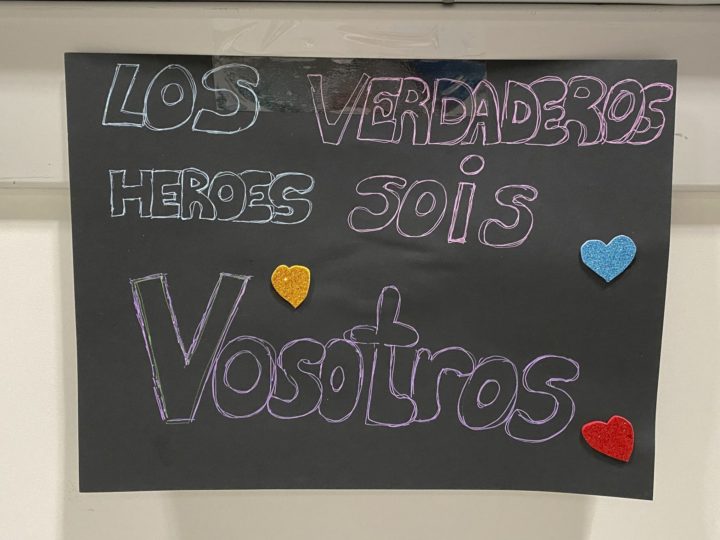 LOS VERDADEROS
HEROES SOiS
Vosotros